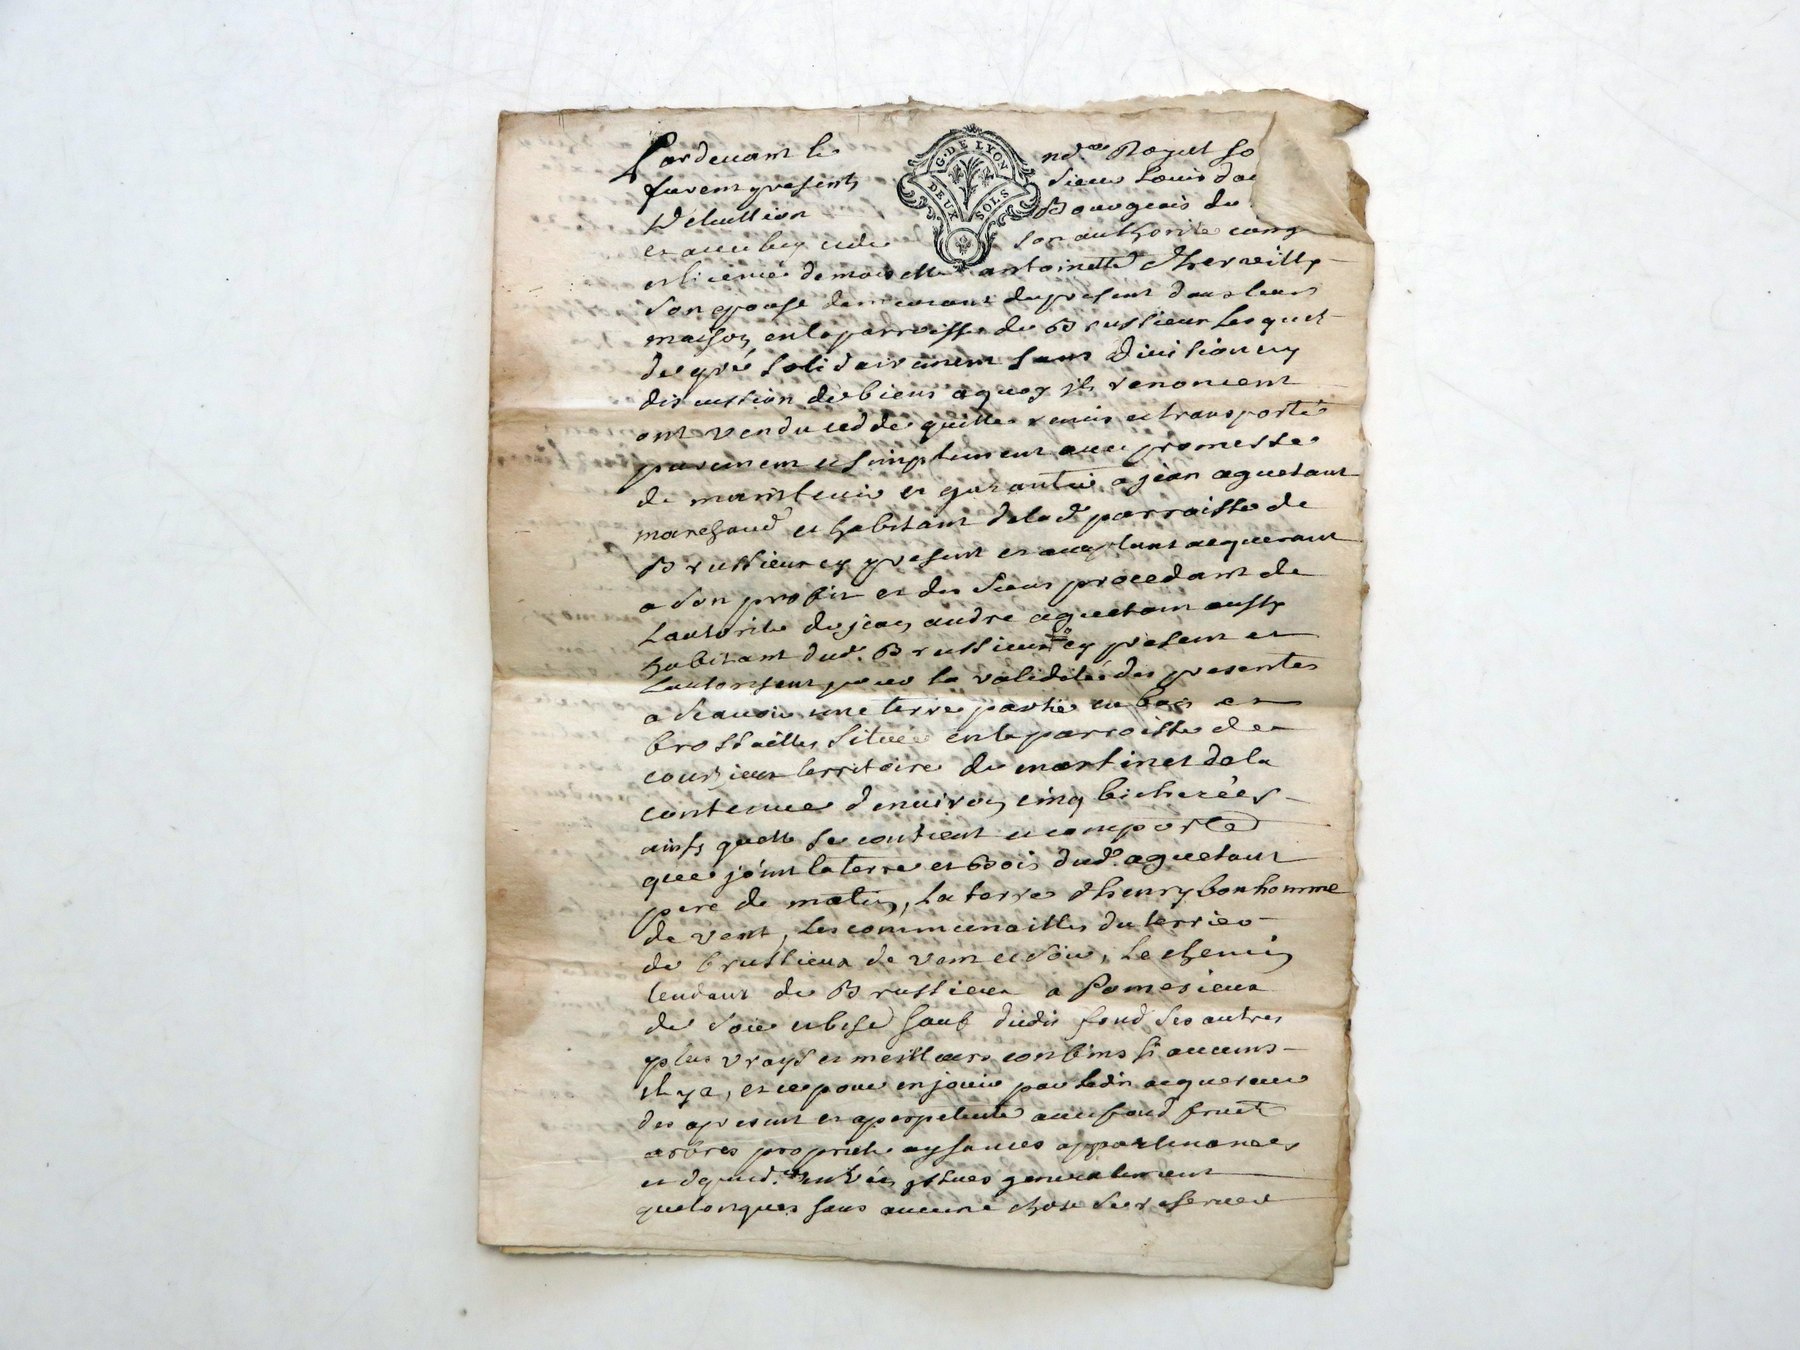 Pardevant le nd.re Royal so
furent presents Sieur Louis da
Bourgeois du
G. DE LYON
DEUX SOLS
et avec luy son authorité cong
et licence demoiselle antoinette
son epouse demeurant du present dans leur
maison en la parroisse de Brussieux lesquels
de gré solidairement sans division ny
discution de biens a quoy ils renoncent
ont vendu cedé quitté remis et transporté
purement et simplement avec promesse
de maintenir et garantir a jean aguetant
marchand et habitant de lad. parroisse de
Brussieux cy present et acceptant acquerant
a son profit et des siens procedant de
l'autorité de jean andre aguetant aussy
habitant dud. Brussieux cy present et
l'autorisant pour la validité des presentes
a scavoir une terre partie en bois et
brossailles située en la parroisse de
courzieux territoire du martinet de la
contenue d'environ cinq bicherées
ainsy quelle se contient et comporte
que joint la terre et Bois dud. aguetant
pere de matin, la terre d'henry bonhomme
de vent, les communailles du terrier
de brussieux de vent et soir, le chemin
tendant de Brussieux a Pomeieux
de soir et bise sauf dudit fond ses autres
plus vrays et meilleurs confins sy aucuns
il y a, et ce pour en jouir par ledit acquereur
des apresent et a perpetuité avec fond fruit
arbres proprieté aysances appartenances
et entrées issues generalement
quelconques sans aucune chose se reserver